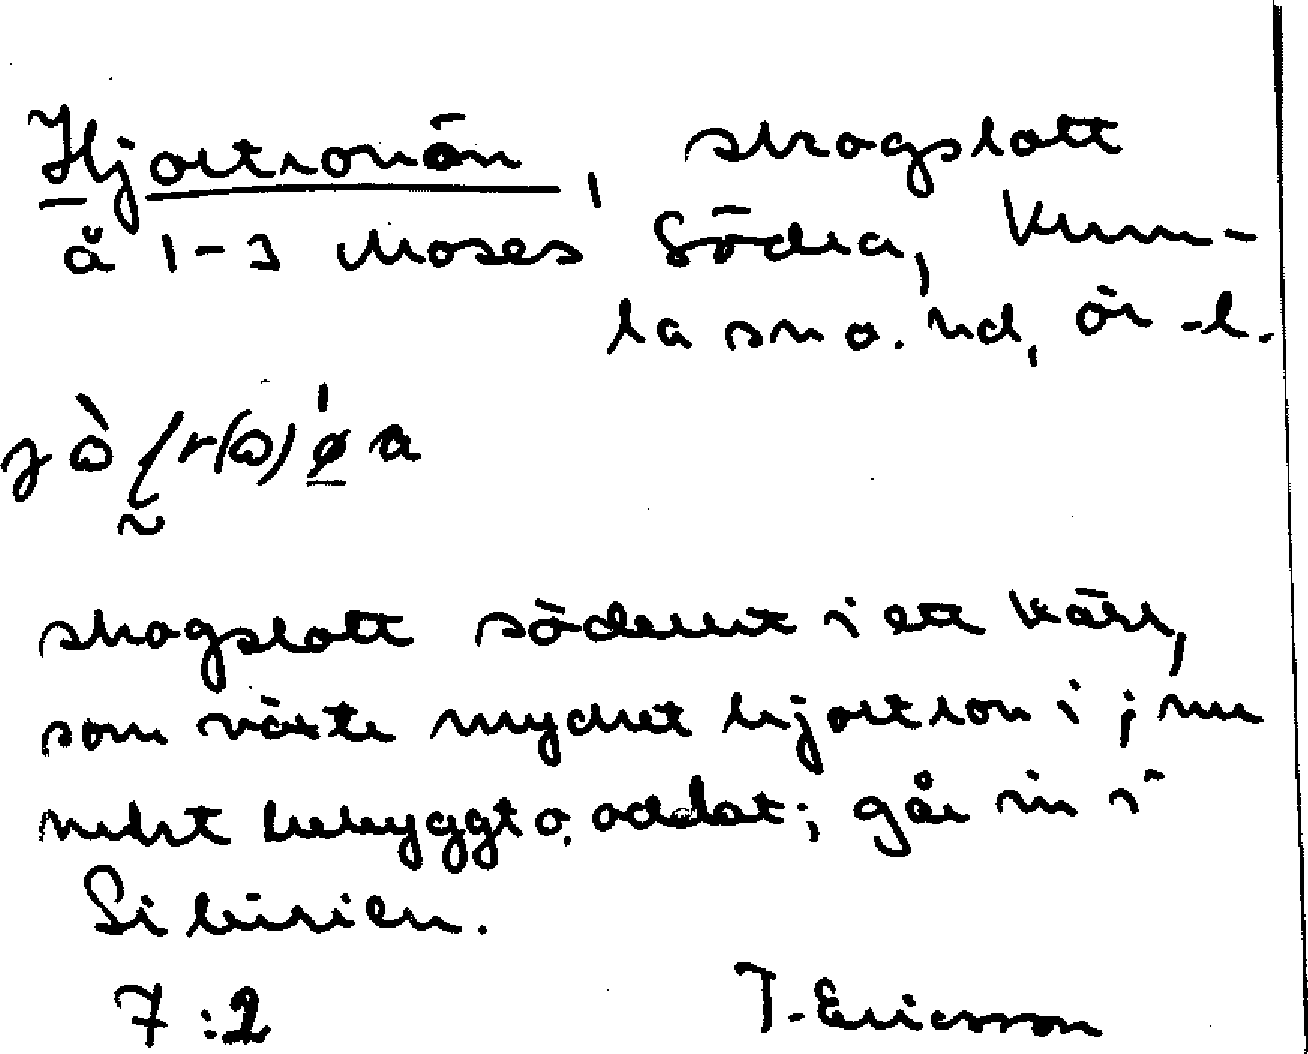 Hjortronön, skogslott
å 1-3 Moses Södra, Kum-
la sn o. hd, Ör.l.
skogslott söderut i ett kärr,
som växte mycket hjortron i; nu
mest bebyggt o. odlat; går in i
Sibirien.
7:2 T. Ericsson